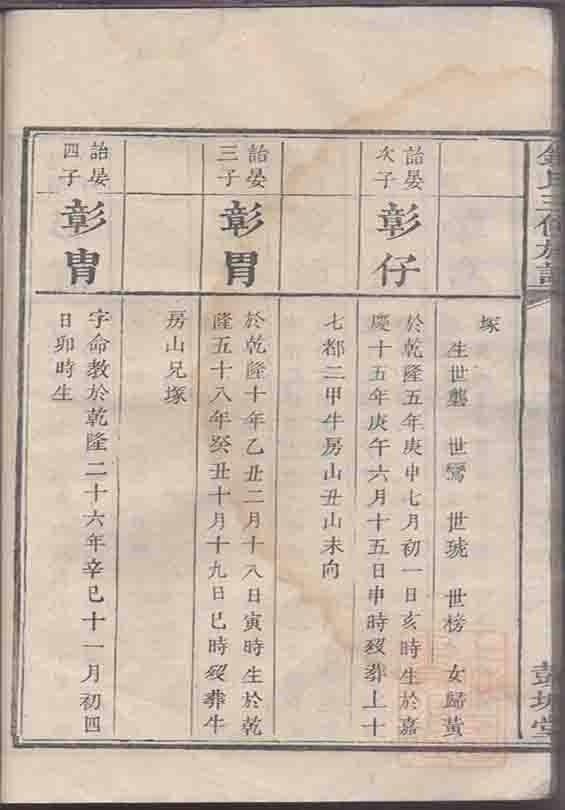 氏三修族譜
彭城堂
塚
生世礱 世鸞 世琥 世榜 女歸黃
詒晏
次子
彰仔
於乾隆五年庚申七月初一日亥時生於嘉
慶十五年庚午六月十五日申時歿葬上十
七都二甲牛房山丑山未向
詒晏
三子
彰胃
於乾隆十年乙丑二月十八日寅時生於乾
隆五十八年癸丑十月十九日巳時歿葬牛
房山兄塚
詒晏
四子
彰胄
字命教於乾隆二十六年辛巳十一月初四
日卯時生